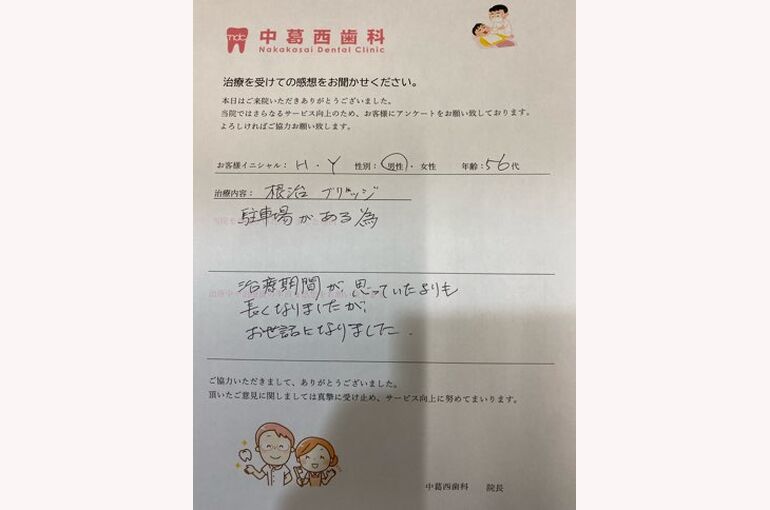 ndc 中葛西歯科
Nakakasai Dental Clinic
治療を受けての感想をお聞かせください。
本日はご来院いただきありがとうございました。
当院ではさらなるサービス向上のため、お客様にアンケートをお願い致しております。
よろしければご協力お願い致します。
お客様イニシャル： H ・ Y 性別： 男性 ・ 女性 年齢：56代
治療内容： 根治 ブリッジ
駐車場がある為
治療期間が思っていたよりも
長くなりましたが、
お世話になりました.
ご協力いただきまして、ありがとうございました。
頂いたご意見に関しましては真摯に受け止め、サービス向上に努めてまいります。
中葛西歯科 院長